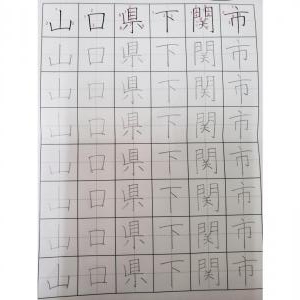 山口県下関市
山口県下関市
山口県下関市
山口県下関市
山口県下関市
山口県下関市
山口県下関市
山口県下関市